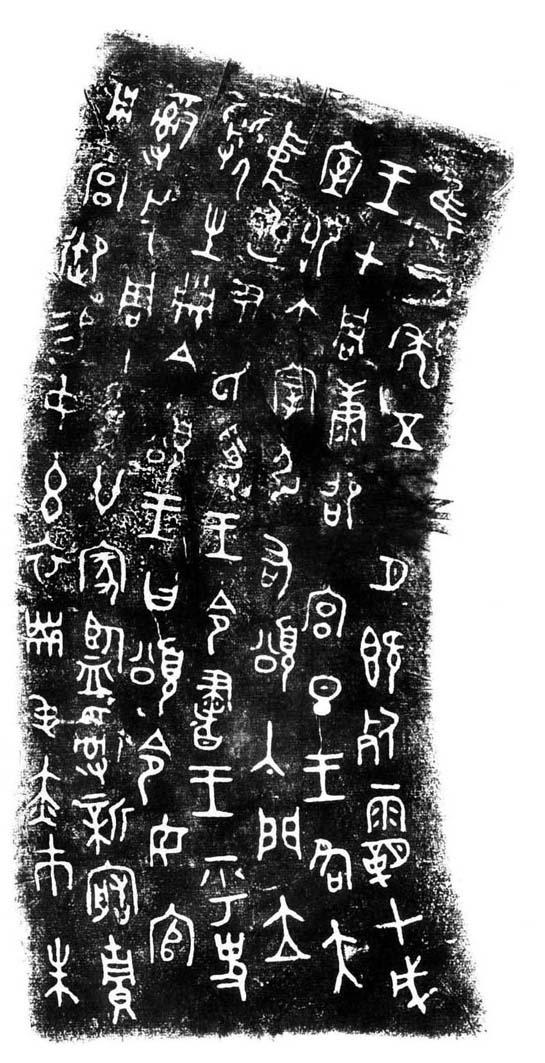 隹三年五月既死霸甲戌
王才周康卲宮旦王各大
室即立宰引右頌入門立
中廷尹氏受王令書王乎史
虢生冊令頌王曰頌令女官
𤔲成周貯廿家監𤔲新造貯
用宮御易女玄衣黹屯赤巿朱